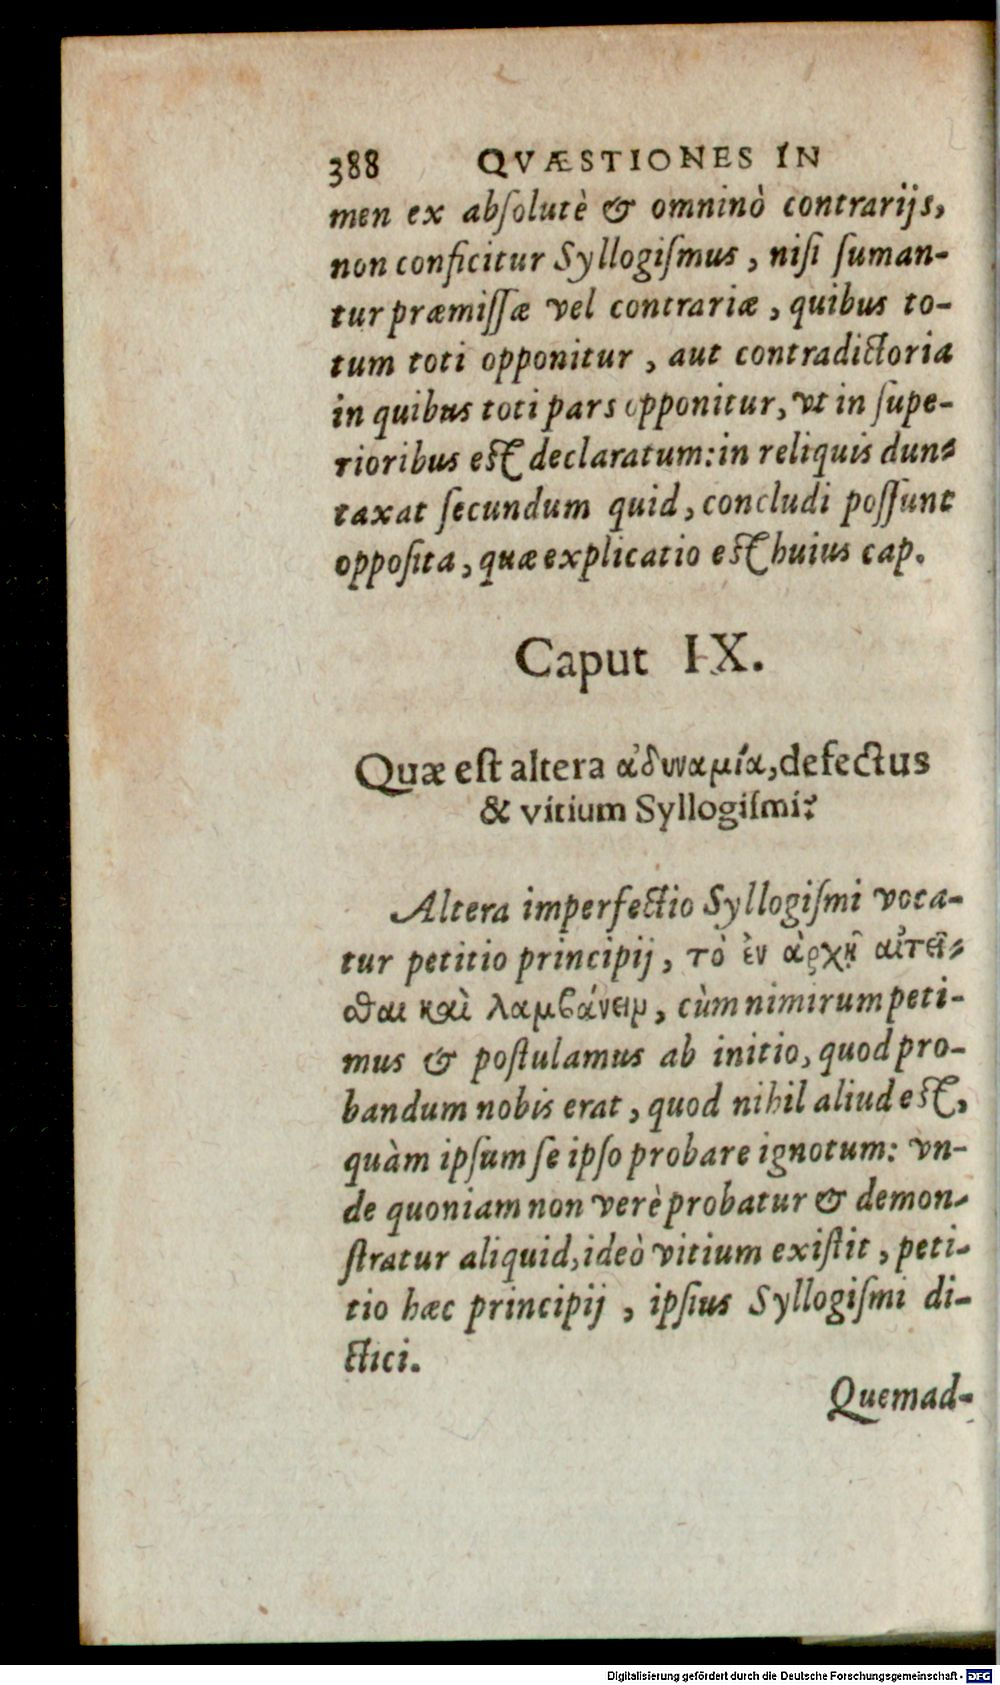 388 QVÆSTIONES IN
men ex abſolutè & omninò contrarijs,
non conficitur Syllogiſmus, niſi ſuman-
tur præmiſſæ vel contrariæ, quibus to-
tum toti opponitur, aut contradictoria
in quibus toti pars opponitur, vt in ſupe-
rioribus eſt declaratum: in reliquis dun-
taxat ſecundum quid, concludi poſſunt
oppoſita, quæ explicatio eſt huius cap.
Caput IX.
Quæ eſt altera ἀδυναμία, defectus
& vitium Syllogiſmi?
Altera imperfectio Syllogiſmi voca-
tur petitio principij, τὸ ἐν ἀρχῇ αἰτεῖ-
σθαι καὶ λαμβάνειν, cùm nimirum peti-
mus & poſtulamus ab initio, quod pro-
bandum nobis erat, quod nihil aliud eſt,
quàm ipſum ſe ipſo probare ignotum: vn-
de quoniam non verè probatur & demon-
ſtratur aliquid, ideò vitium exiſtit, peti-
tio hæc principij, ipſius Syllogiſmi di-
ctici.
Quemad-
Digitalisierung gefördert durch die Deutsche Forschungsgemeinschaft - DFG